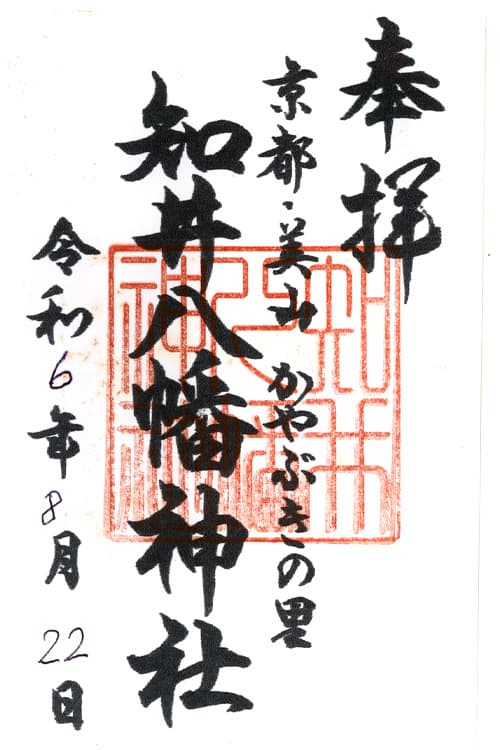 奉拝
京都・美山 かやぶきの里
知井八幡神社
令和6年8月22日
知井
八幡
神社